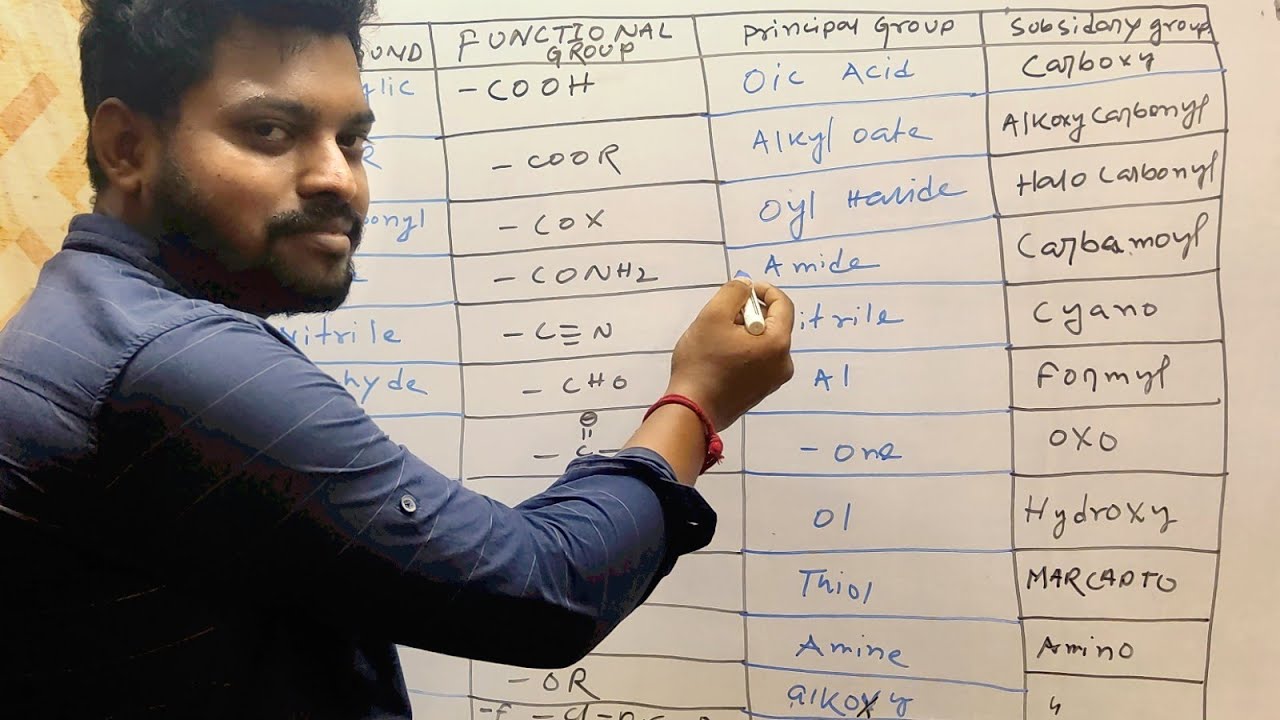 UND FUNCTIONAL GROUP Principal Group Subsidary group
ylic -COOH Oic Acid Carboxy
R -COOR Alkyl oate Alkoxy Carbonyl
bonyl -COX Oyl Halide Halo Carbonyl
-CONH2 Amide Carbamoyl
Nitrile -C≡N itrile Cyano
hyde -CHO Al Formyl
O
=
-C- -One OXO
Ol Hydroxy
Thiol MARCAPTO
Amine Amino
-OR alkoxy "
-F -Cl -